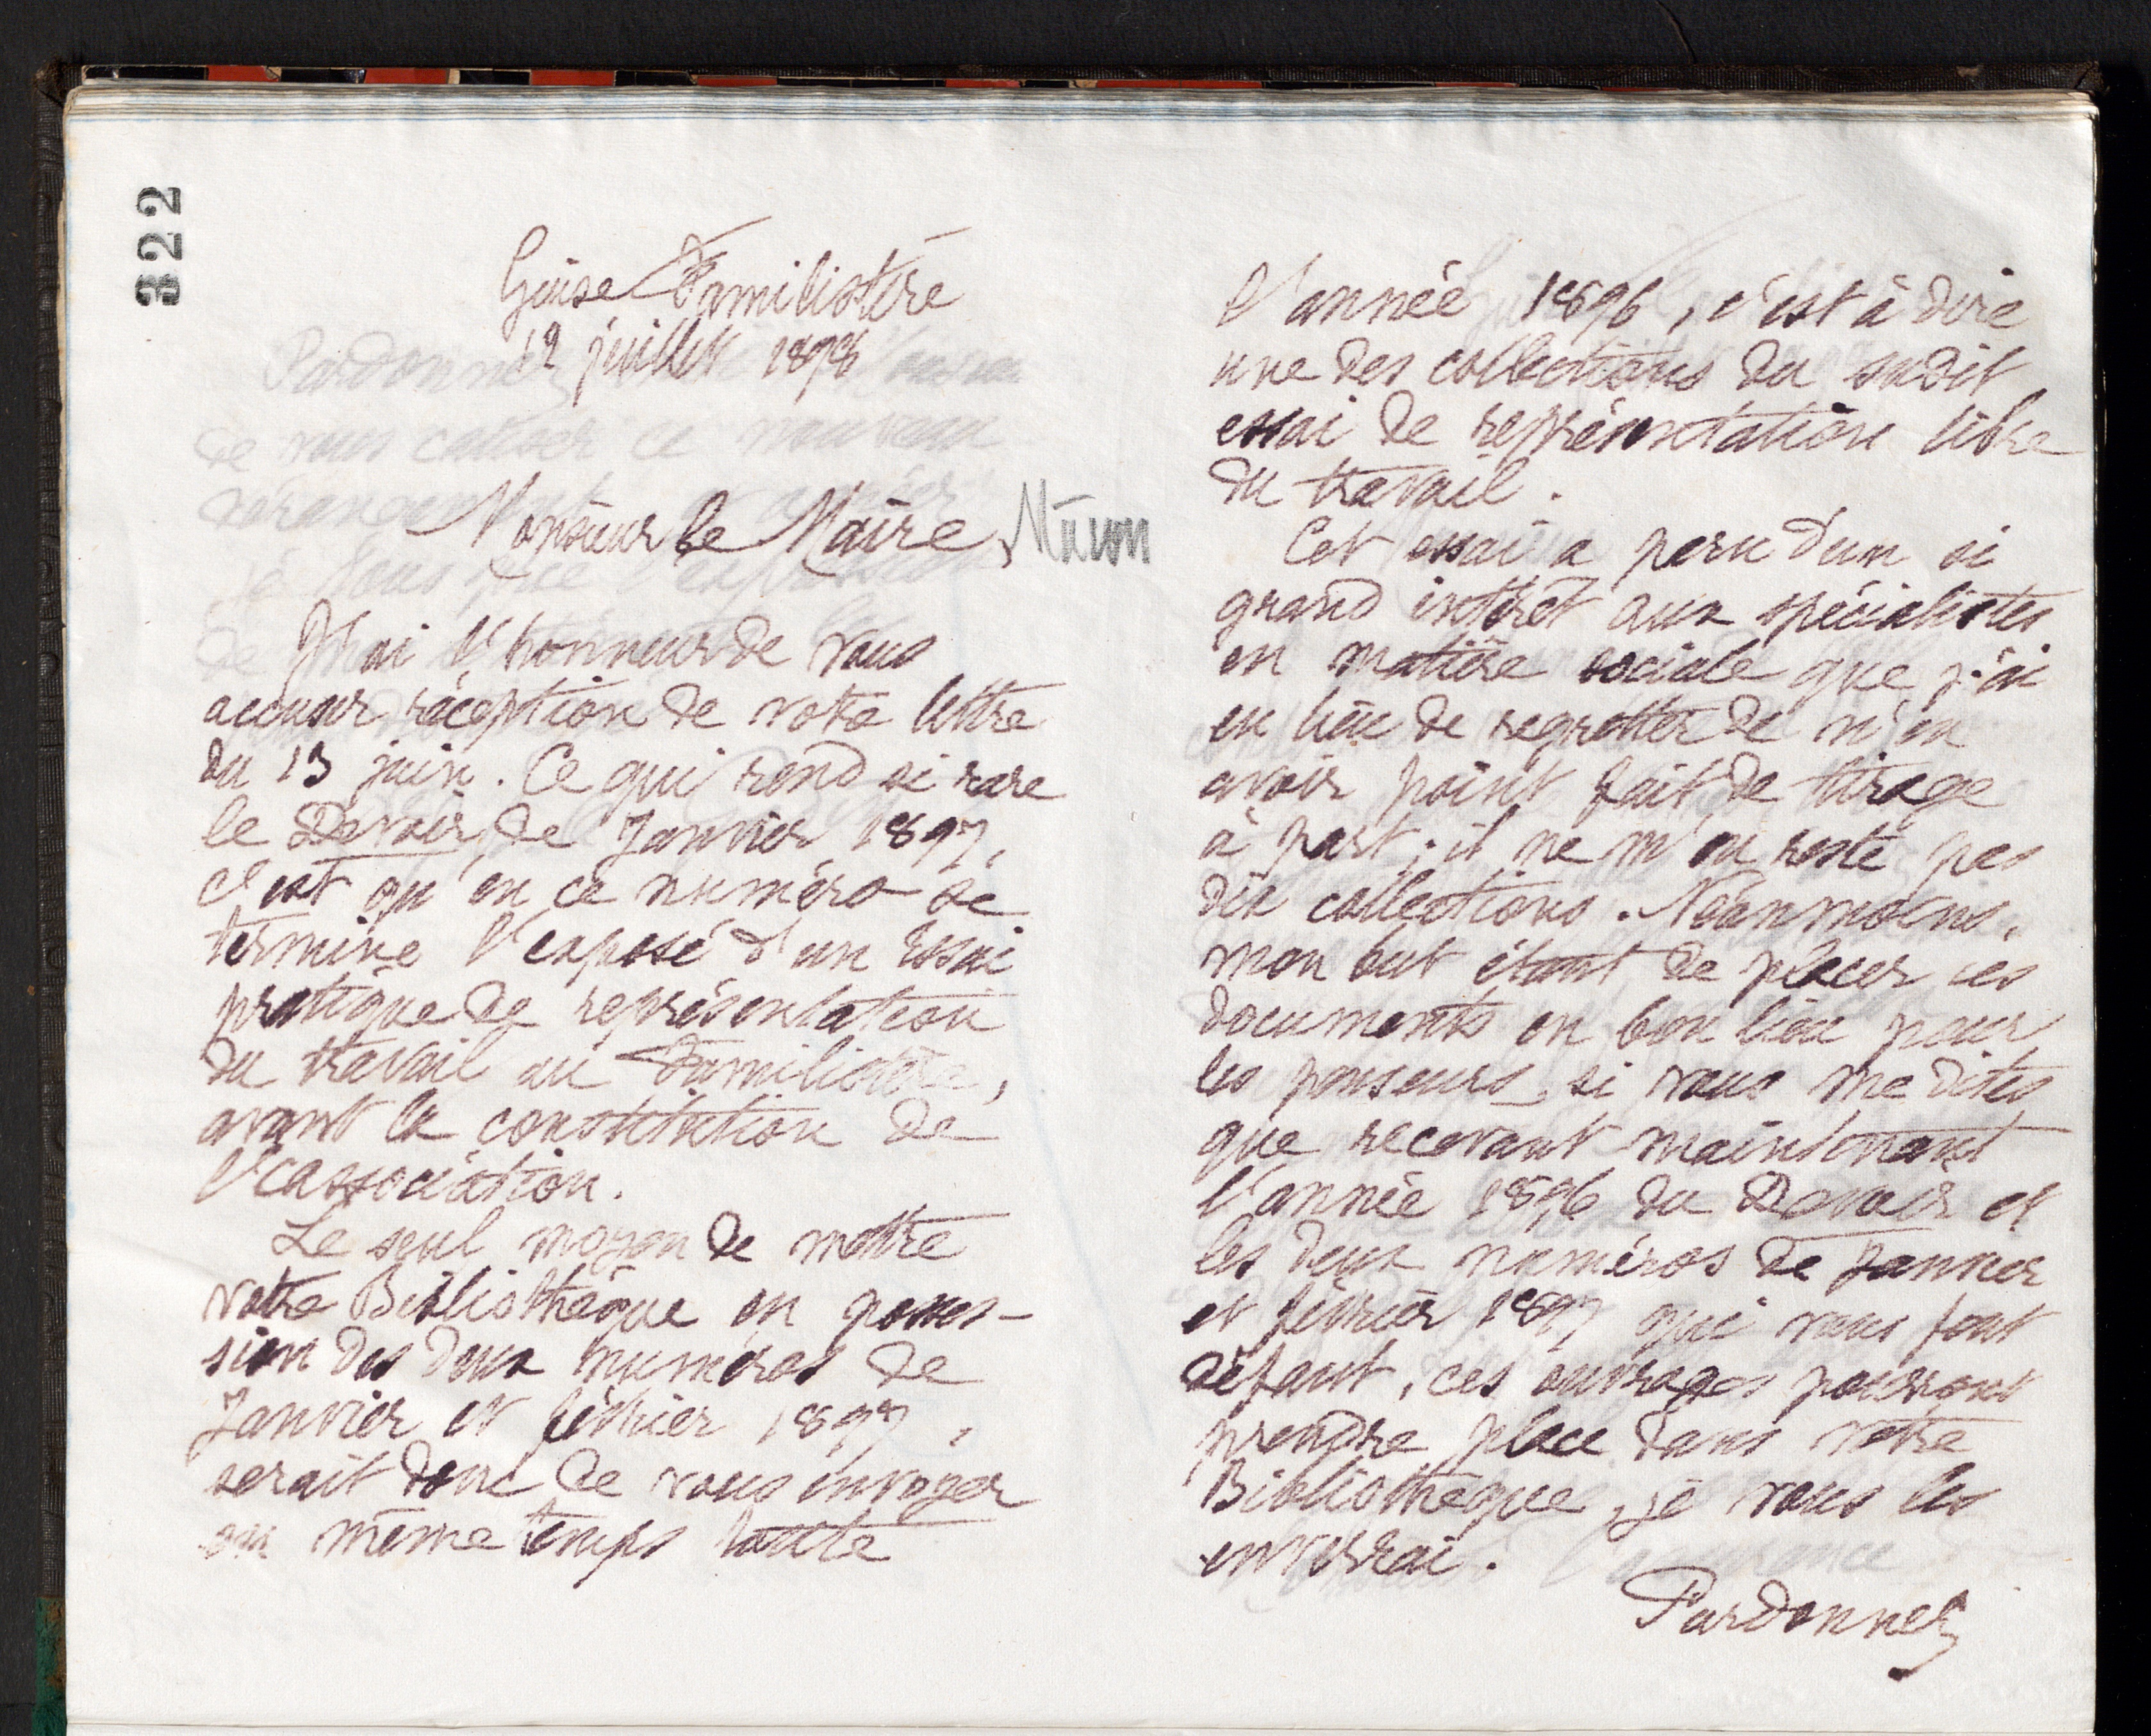 322
Guise Familistère
12 juillet 1898
Monsieur le Maire,
J'ai l'honneur de vous
accuser réception de votre lettre
du 13 juin. Ce qui rend si rare
le Devoir de Janvier 1897,
c'est qu'en ce numéro se
termine l'exposé d'un Essai
pratique de représentation
du travail au Familistère,
avant la constitution de
l'association.
Le seul moyen de mettre
votre Bibliothèque en posses-
sion des deux numéros de
Janvier et février 1897,
serait donc de vous envoyer
en même temps toute
l'année 1896, c'est à dire
une des collections du susdit
essai de représentation libre
du travail.
Cet essai a paru d'un si
grand intérêt aux spécialistes
en matière sociale que j'ai
eu lieu de regretter de n'en
avoir point fait de tirage
à part; il ne m'en reste pas
dix collections. Néanmoins,
mon but étant de placer ces
documents en bon lieu pour
les penseurs, si vous me dites
que recevant maintenant
l'année 1896 du Devoir et
les deux numéros de Janvier
et février 1897 qui vous font
défaut, ces ouvrages pourront
prendre place dans votre
Bibliothèque, je vous les
enverrai.
Pardonnez